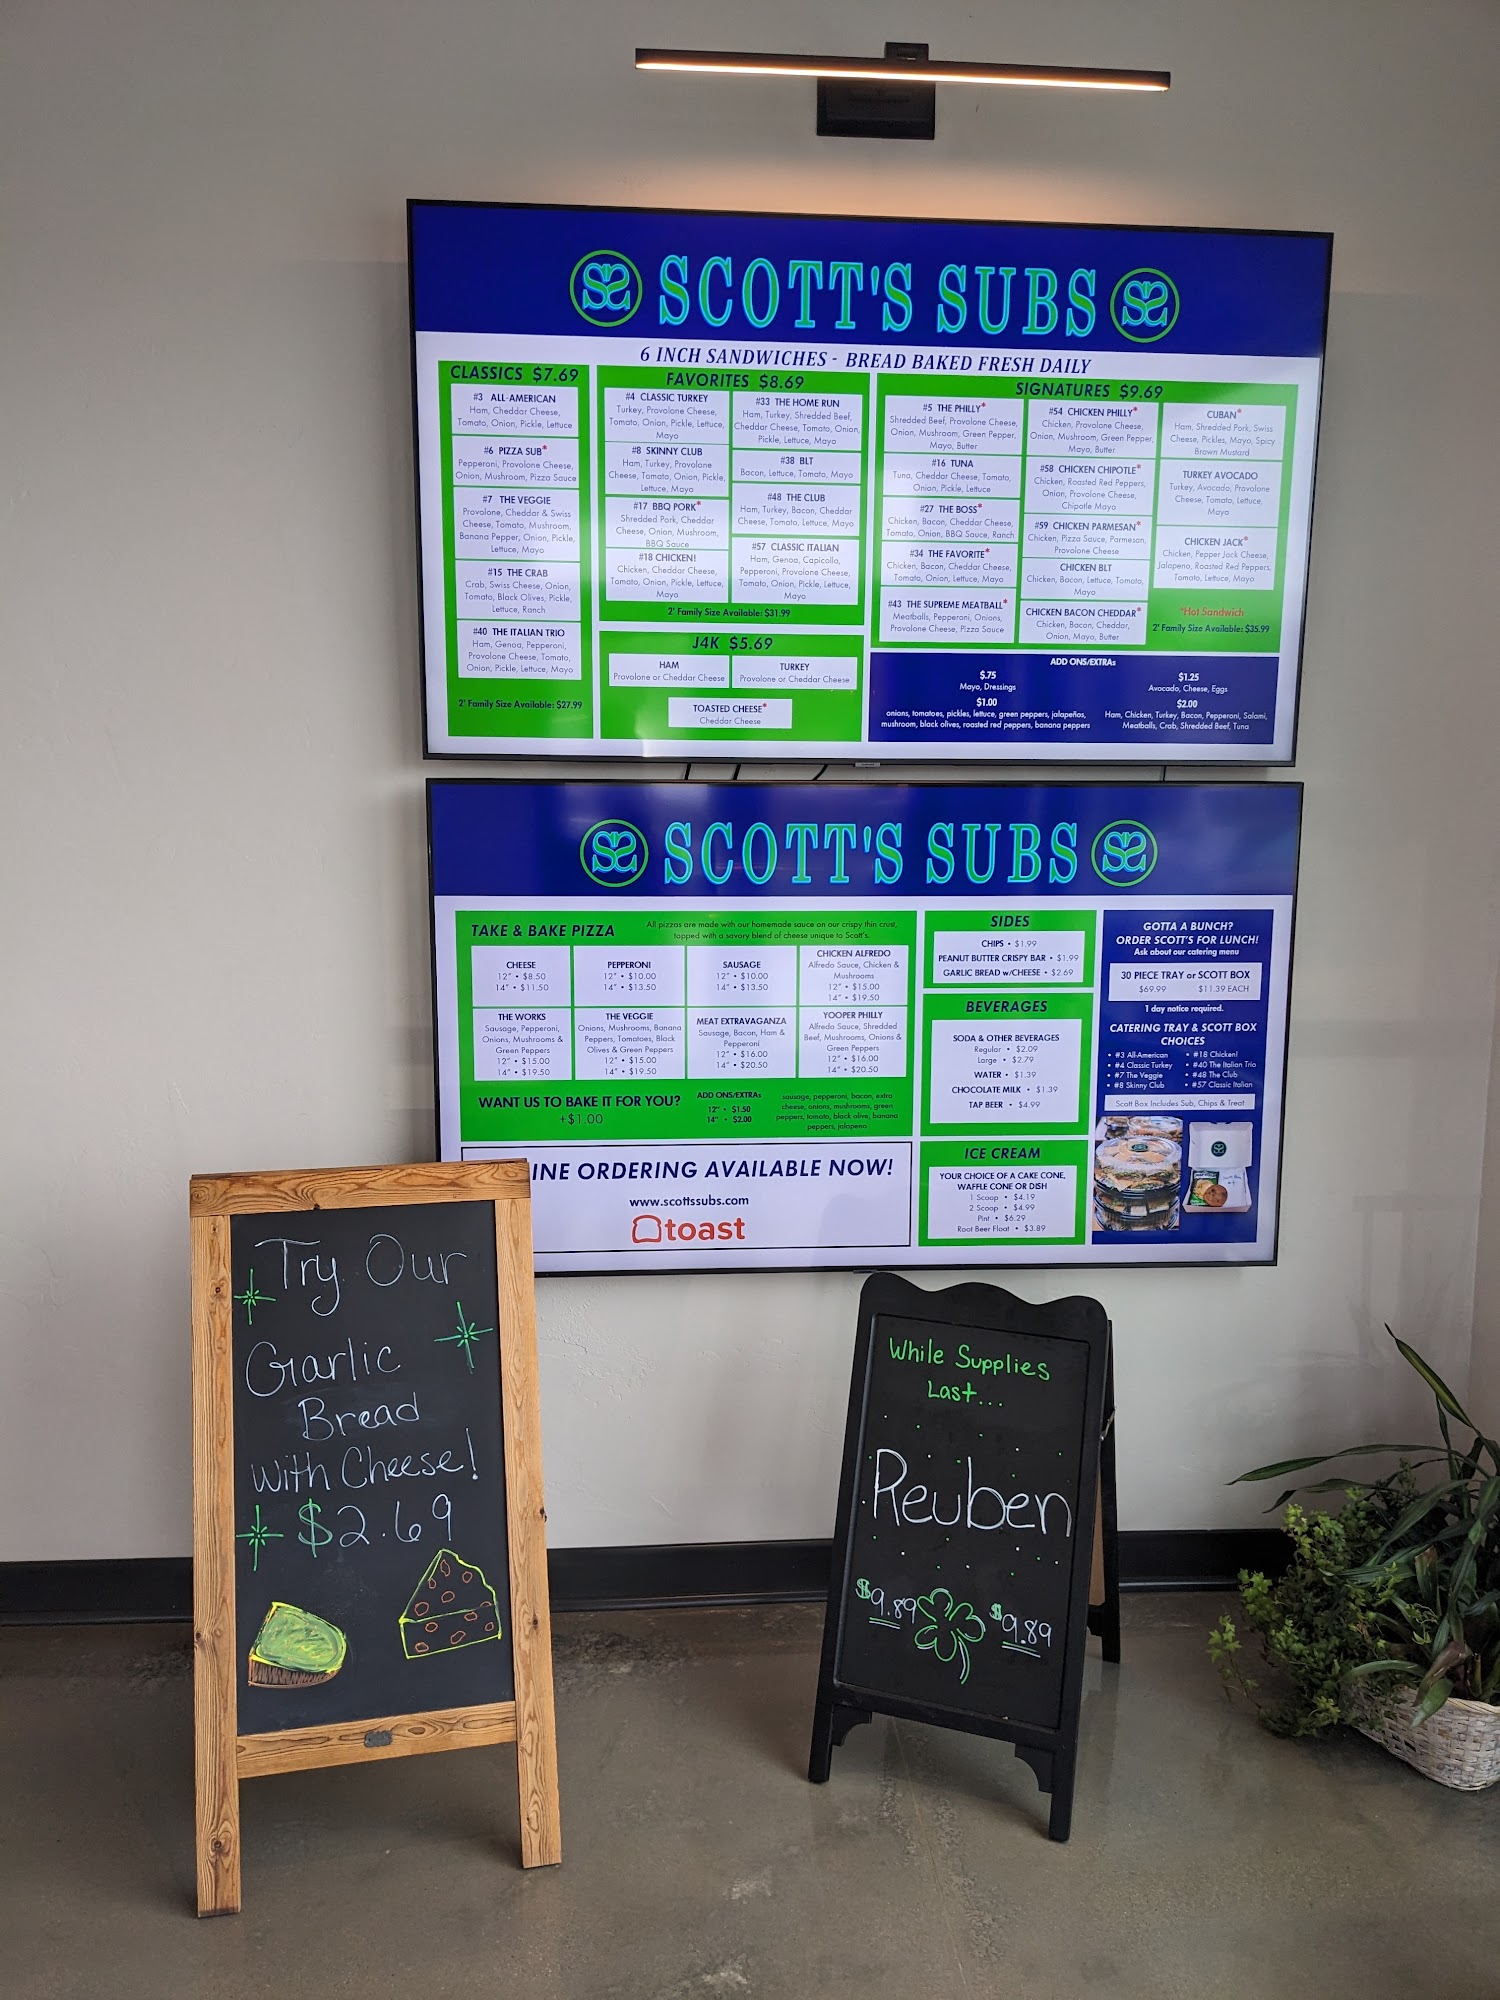 SS SCOTT'S SUBS SS
6 INCH SANDWICHES - BREAD BAKED FRESH DAILY
CLASSICS $7.69
#3 ALL-AMERICAN
Ham, Cheddar Cheese,
Tomato, Onion, Pickle, Lettuce
#6 PIZZA SUB*
Pepperoni, Provolone Cheese,
Onion, Mushroom, Pizza Sauce
#7 THE VEGGIE
Provolone, Cheddar & Swiss
Cheese, Tomato, Mushroom,
Banana Pepper, Onion, Pickle,
Lettuce, Mayo
#15 THE CRAB
Crab, Swiss Cheese, Onion,
Tomato, Black Olives, Pickle,
Lettuce, Ranch
#40 THE ITALIAN TRIO
Ham, Genoa, Pepperoni,
Provolone Cheese, Tomato,
Onion, Pickle, Lettuce, Mayo
2' Family Size Available: $27.99
FAVORITES $8.69
#4 CLASSIC TURKEY
Turkey, Provolone Cheese,
Tomato, Onion, Pickle, Lettuce,
Mayo
#8 SKINNY CLUB
Ham, Turkey, Provolone
Cheese, Tomato, Onion, Pickle,
Lettuce, Mayo
#17 BBQ PORK*
Shredded Pork, Cheddar
Cheese, Onion, Mushroom,
BBQ Sauce
#18 CHICKEN!
Chicken, Cheddar Cheese,
Tomato, Onion, Pickle, Lettuce,
Mayo
#33 THE HOME RUN
Ham, Turkey, Shredded Beef,
Cheddar Cheese, Tomato, Onion,
Pickle, Lettuce, Mayo
#38 BLT
Bacon, Lettuce, Tomato, Mayo
#48 THE CLUB
Ham, Turkey, Bacon, Cheddar
Cheese, Tomato, Lettuce, Mayo
#57 CLASSIC ITALIAN
Ham, Genoa, Capicolla,
Pepperoni, Provolone Cheese,
Tomato, Onion, Pickle, Lettuce,
Mayo
2' Family Size Available: $31.99
J4K $5.69
HAM
Provolone or Cheddar Cheese
TURKEY
Provolone or Cheddar Cheese
TOASTED CHEESE*
Cheddar Cheese
SIGNATURES $9.69
#5 THE PHILLY*
Shredded Beef, Provolone Cheese,
Onion, Mushroom, Green Pepper,
Mayo, Butter
#16 TUNA
Tuna, Cheddar Cheese, Tomato,
Onion, Pickle, Lettuce
#27 THE BOSS*
Chicken, Bacon, Cheddar Cheese,
Tomato, Onion, BBQ Sauce, Ranch
#34 THE FAVORITE*
Chicken, Bacon, Cheddar Cheese,
Tomato, Onion, Lettuce, Mayo
#43 THE SUPREME MEATBALL*
Meatballs, Pepperoni, Onions,
Provolone Cheese, Pizza Sauce
#54 CHICKEN PHILLY*
Chicken, Provolone Cheese,
Onion, Mushroom, Green Pepper,
Mayo, Butter
#58 CHICKEN CHIPOTLE*
Chicken, Roasted Red Peppers,
Onion, Provolone Cheese,
Chipotle Mayo
#59 CHICKEN PARMESAN*
Chicken, Pizza Sauce, Parmesan,
Provolone Cheese
CHICKEN BLT
Chicken, Bacon, Lettuce, Tomato,
Mayo
CHICKEN BACON CHEDDAR*
Chicken, Bacon, Cheddar,
Onion, Mayo, Butter
CUBAN*
Ham, Shredded Pork, Swiss
Cheese, Pickles, Mayo, Spicy
Brown Mustard
TURKEY AVOCADO
Turkey, Avocado, Provolone
Cheese, Tomato, Lettuce,
Mayo
CHICKEN JACK*
Chicken, Pepper Jack Cheese,
Jalapeno, Roasted Red Peppers,
Tomato, Lettuce, Mayo
*Hot Sandwich
2' Family Size Available: $35.99
ADD ONS/EXTRAs
$.75
Mayo, Dressings
$1.00
onions, tomatoes, pickles, lettuce, green peppers, jalapeños,
mushroom, black olives, roasted red peppers, banana peppers
$1.25
Avocado, Cheese, Eggs
$2.00
Ham, Chicken, Turkey, Bacon, Pepperoni, Salami,
Meatballs, Crab, Shredded Beef, Tuna
SS SCOTT'S SUBS SS
TAKE & BAKE PIZZA
All pizzas are made with our homemade sauce on our crispy thin crust,
topped with a savory blend of cheese unique to Scott's.
CHEESE
12" • $8.50
14" • $11.50
PEPPERONI
12" • $10.00
14" • $13.50
SAUSAGE
12" • $10.00
14" • $13.50
CHICKEN ALFREDO
Alfredo Sauce, Chicken &
Mushrooms
12" • $15.00
14" • $19.50
THE WORKS
Sausage, Pepperoni,
Onions, Mushrooms &
Green Peppers
12" • $15.00
14" • $19.50
THE VEGGIE
Onions, Mushrooms, Banana
Peppers, Tomatoes, Black
Olives & Green Peppers
12" • $15.00
14" • $19.50
MEAT EXTRAVAGANZA
Sausage, Bacon, Ham &
Pepperoni
12" • $16.00
14" • $20.50
YOOPER PHILLY
Alfredo Sauce, Shredded
Beef, Mushrooms, Onions &
Green Peppers
12" • $16.00
14" • $20.50
WANT US TO BAKE IT FOR YOU?
+$1.00
ADD ONS/EXTRAs
12" • $1.50
14" • $2.00
sausage, pepperoni, bacon, extra
cheese, onions, mushrooms, green
peppers, tomato, black olive, banana
peppers, jalapeno
INE ORDERING AVAILABLE NOW!
www.scottssubs.com
toast
SIDES
CHIPS • $1.99
PEANUT BUTTER CRISPY BAR • $1.99
GARLIC BREAD w/CHEESE • $2.69
BEVERAGES
SODA & OTHER BEVERAGES
Regular • $2.09
Large • $2.79
WATER • $1.39
CHOCOLATE MILK • $1.39
TAP BEER • $4.99
ICE CREAM
YOUR CHOICE OF A CAKE CONE,
WAFFLE CONE OR DISH
1 Scoop • $4.19
2 Scoop • $4.99
Pint • $6.29
Root Beer Float • $3.89
GOTTA A BUNCH?
ORDER SCOTT'S FOR LUNCH!
Ask about our catering menu
30 PIECE TRAY or SCOTT BOX
$69.99 $11.39 EACH
1 day notice required.
CATERING TRAY & SCOTT BOX
CHOICES
• #3 All-American
• #4 Classic Turkey
• #7 The Veggie
• #8 Skinny Club
• #18 Chicken!
• #40 The Italian Trio
• #48 The Club
• #57 Classic Italian
Scott Box Includes Sub, Chips & Treat
Try Our
Garlic
Bread
with Cheese!
$2.69
While Supplies
Last...
Reuben
$9.89 $9.89